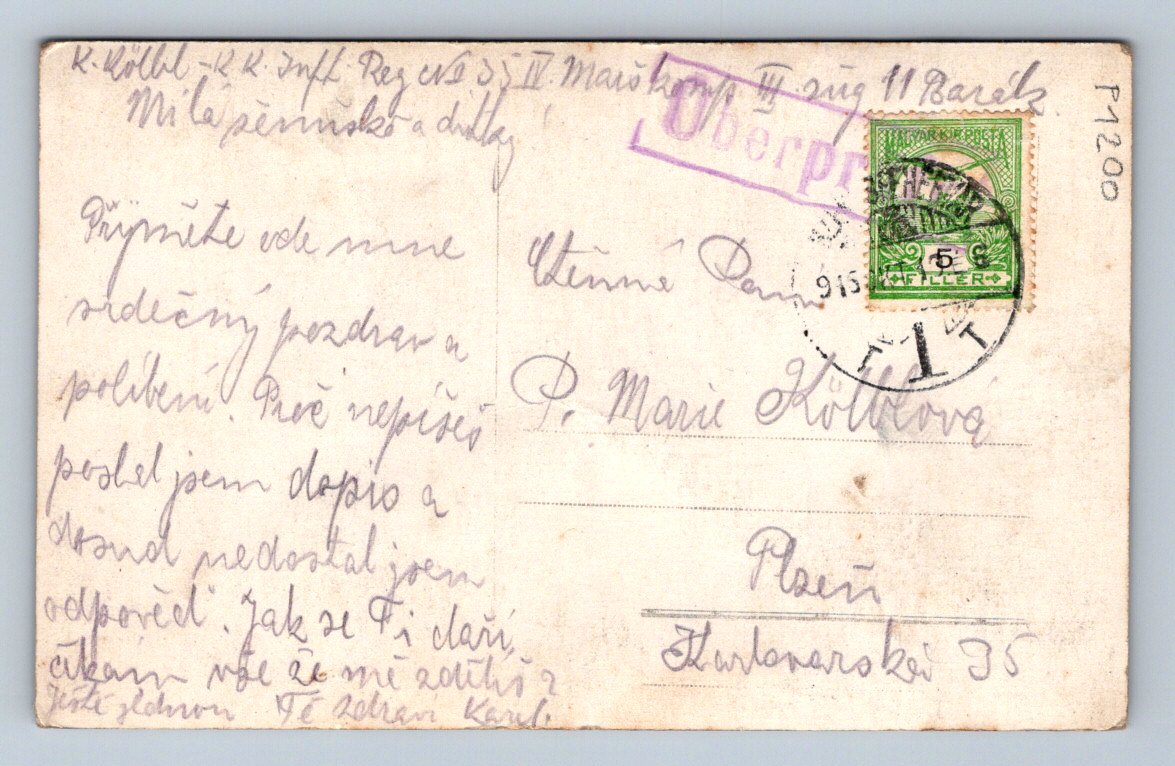 K. Kölbl - K K. Inft. Reg No 35 IV. Marškomp III zug 11 Barák
Milá ženuško a dítky
Přijměte ode mne
srdečný pozdrav a
políbení. Proč nepíšeš
poslal jsem dopis a
dosud nedostal jsem
odpověď. Jak se Ti daří,
čekám vše že mě sdělíš?
Ještě jednou Tě zdraví Karel.
Überpr
MAGYAR KIR. POSTA
5
FILLER
915 OKT
Ctěnná Paní
P. Marie Kölblová
Plzeň
Karlovarská 35
P1200